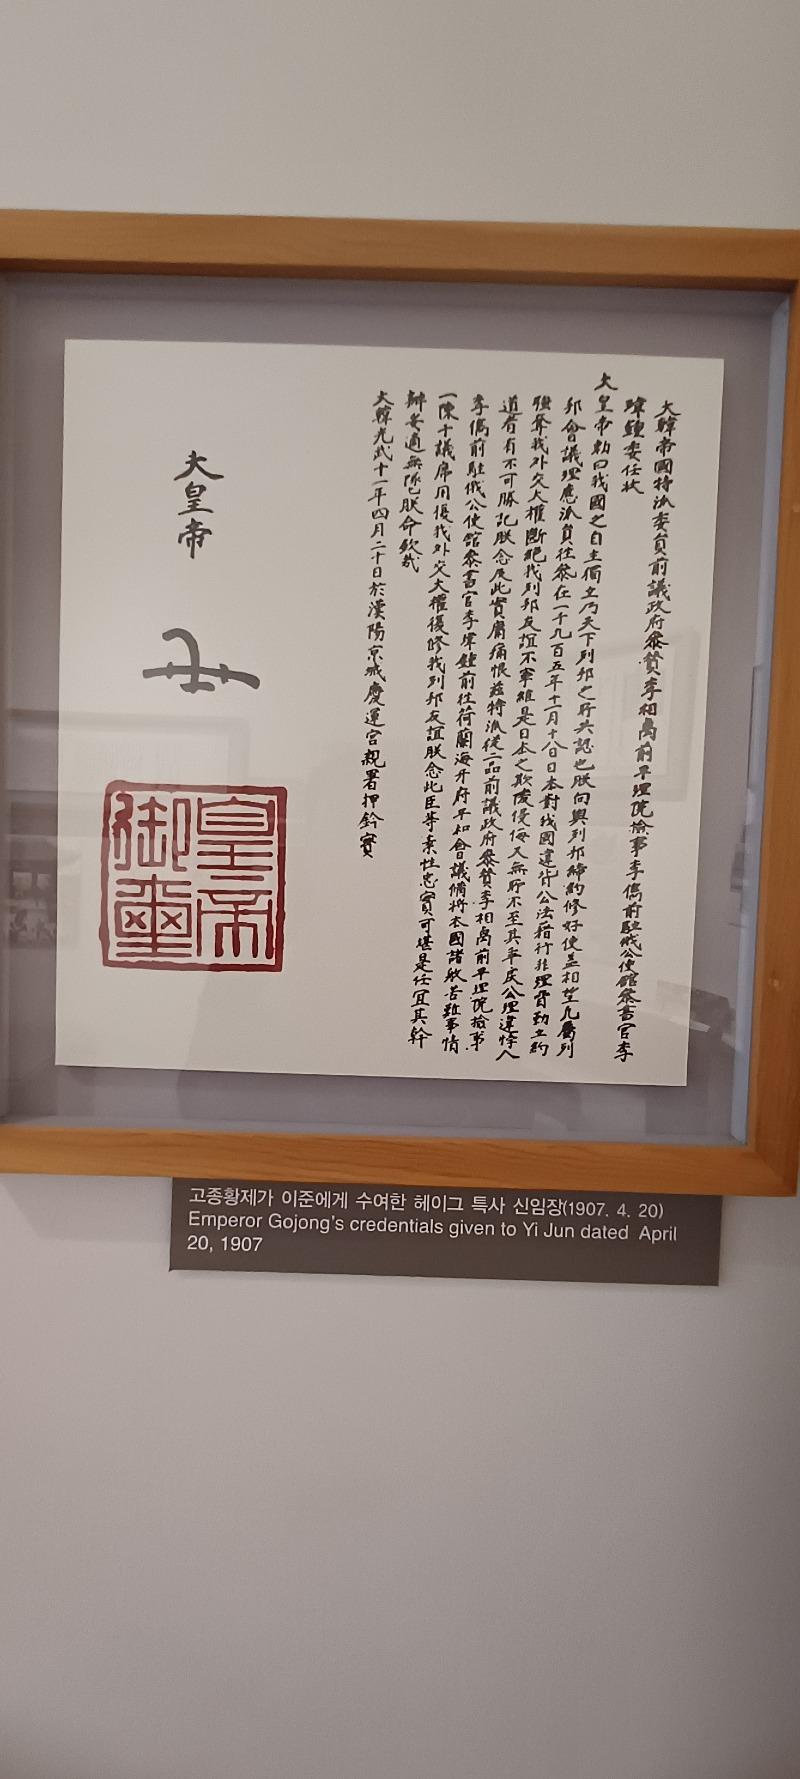 大韓帝國特派委員前議政府參贊李相卨前平理院檢事李儁前駐俄公使館參書官李
瑋鍾委任狀
大皇帝勅曰我國之自主獨立乃天下列邦之所共認也朕向與列邦締約修好使盖相望凡屬列
邦會議理應派員往參在一千九百五年十一月十八日日本對我國違背公法藉行非理脅勒立約
強奪我外交大權斷絕我列邦友誼不寧維是日本之欺陵侵侮又無所不至其乖戾公理違悖人
道者有不可勝記朕念及此實庸痛恨茲特派從二品前議政府參贊李相卨前平理院檢事
李儁前駐俄公使館參書官李瑋鍾前往荷蘭海牙府平和會議備將本國諸般苦難事情
一陳于議席用復我外交大權復修我列邦友誼朕念此臣等素性忠實可堪是任宜其幹
辦妥適無 朕命欽哉
大韓光武十一年四月二十日於漢陽京城慶運宮親署押鈐寶
大皇帝
皇帝
御璽
고종황제가 이준에게 수여한 헤이그 특사 신임장(1907. 4. 20)
Emperor Gojong's credentials given to Yi Jun dated April
20, 1907